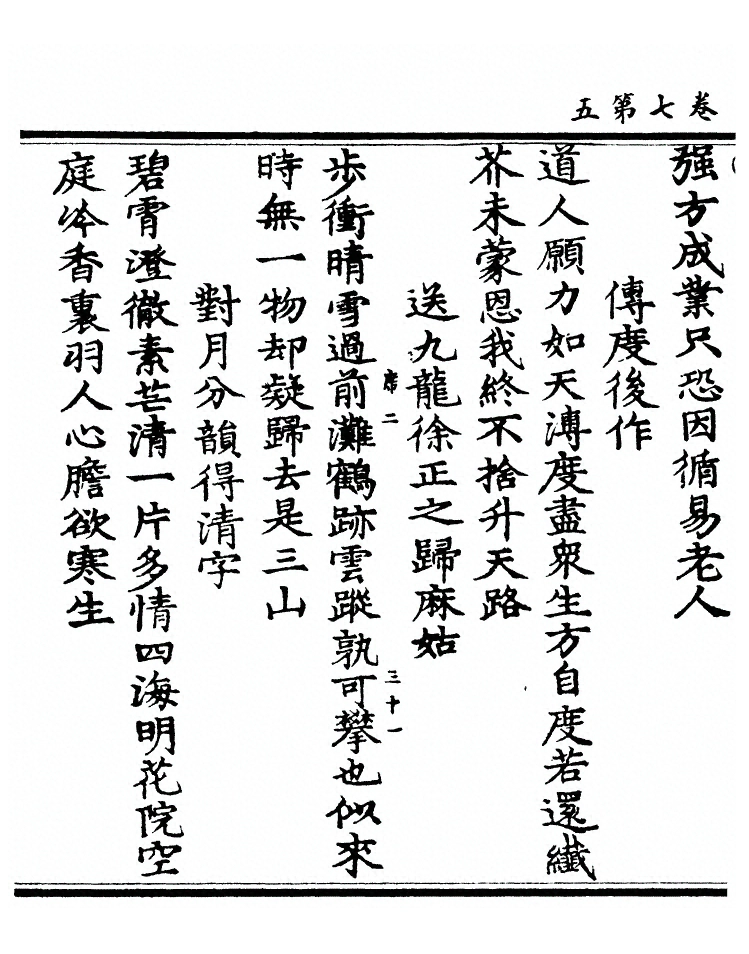 卷七第五
强方成業只恐因循易老人
傳度後作
道人願力如天溥度盡衆生方自度若還纖
芥未蒙恩我終不捨升天路
送九龍徐正之歸麻姑
席二
三十一
步衝晴雪過前灘鶴跡雲蹤孰可攀也似來
時無一物却凝歸去是三山
對月分韻得清字
碧霄澄徹素芒清一片多情四海明花院空
庭冷香裏羽人心膽欲寒生